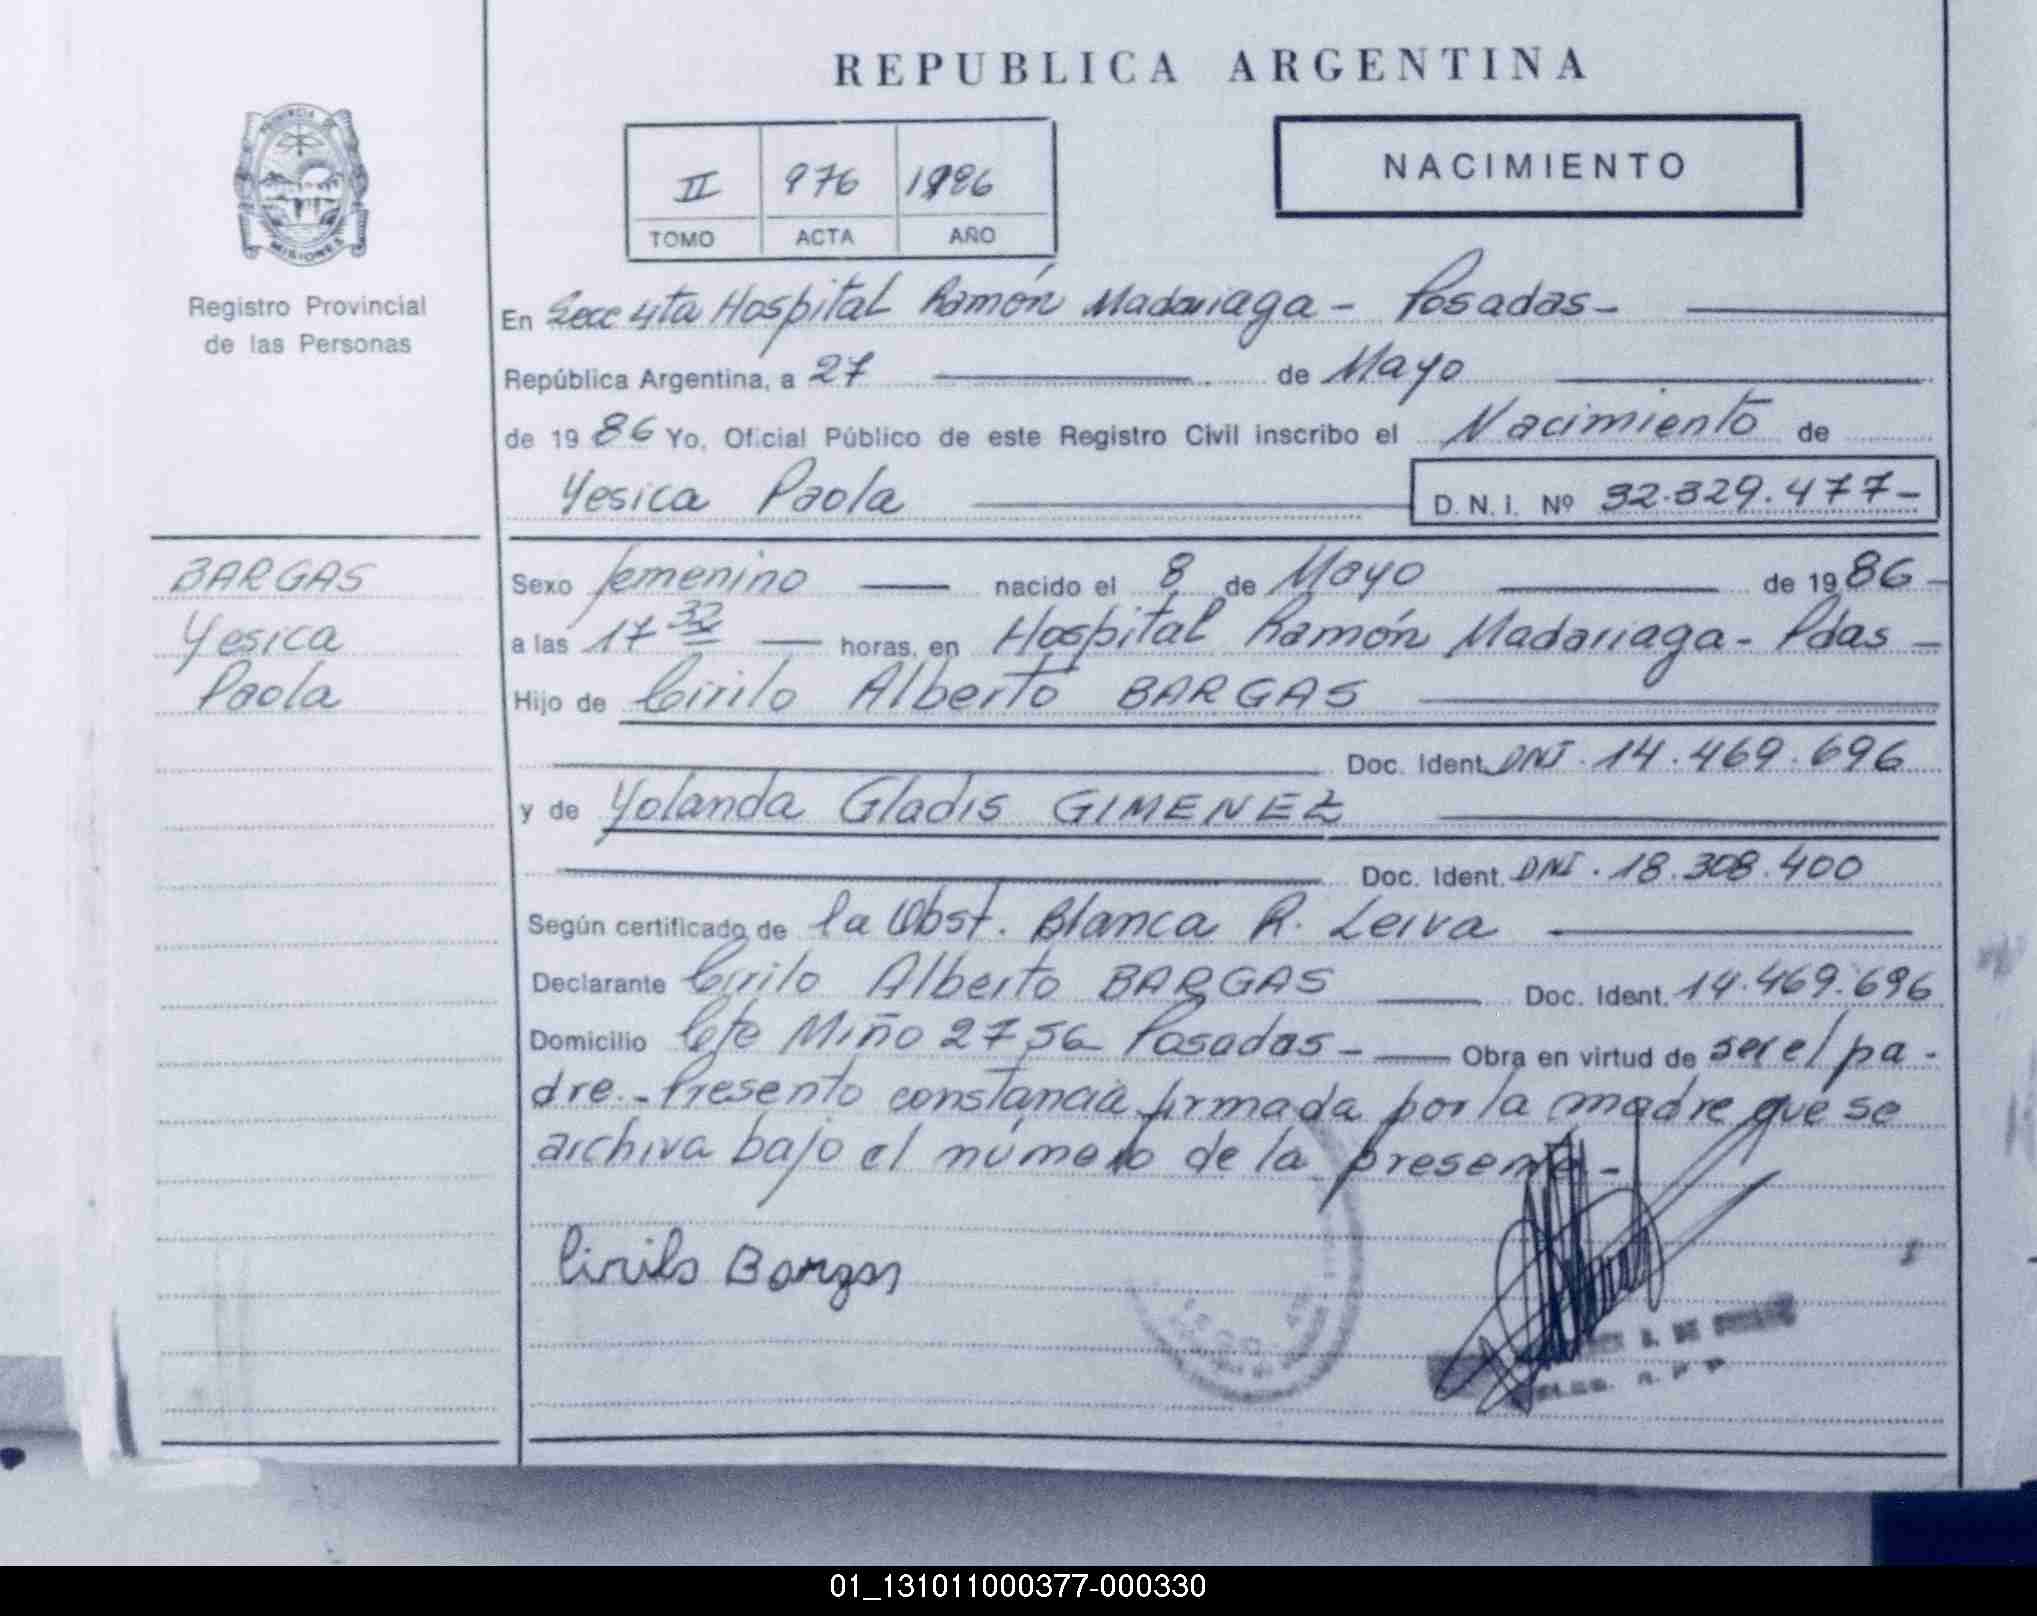 REPUBLICA ARGENTINA
PROVINCIA DE
MISIONES
Registro Provincial
de las Personas
II 976 1986
TOMO ACTA AÑO
NACIMIENTO
En Secc 4ta Hospital Ramón Madariaga - Posadas -
República Argentina, a 27 de Mayo
de 1986 Yo, Oficial Público de este Registro Civil inscribo el Nacimiento de
Yesica Paola D. N. I. Nº 32.329.477-
BARGAS
Yesica
Paola
Sexo femenino nacido el 8 de Mayo de 1986-
a las 17 32 horas, en Hospital Ramón Madariaga - Pdas -
Hijo de Cirilo Alberto BARGAS
Doc. Ident. DNI. 14.469.696
y de Yolanda Gladis GIMENEZ
Doc. Ident. DNI. 18.308.400
Según certificado de la Obst. Blanca R. Leiva
Declarante Cirilo Alberto BARGAS Doc. Ident. 14.469.696
Domicilio Cfte Miño 2756 Posadas - Obra en virtud de ser el pa-
dre.- Presento constancia firmada por la madre que se
archiva bajo el número de la presente -
Cirilo Bargas
01_131011000377-000330